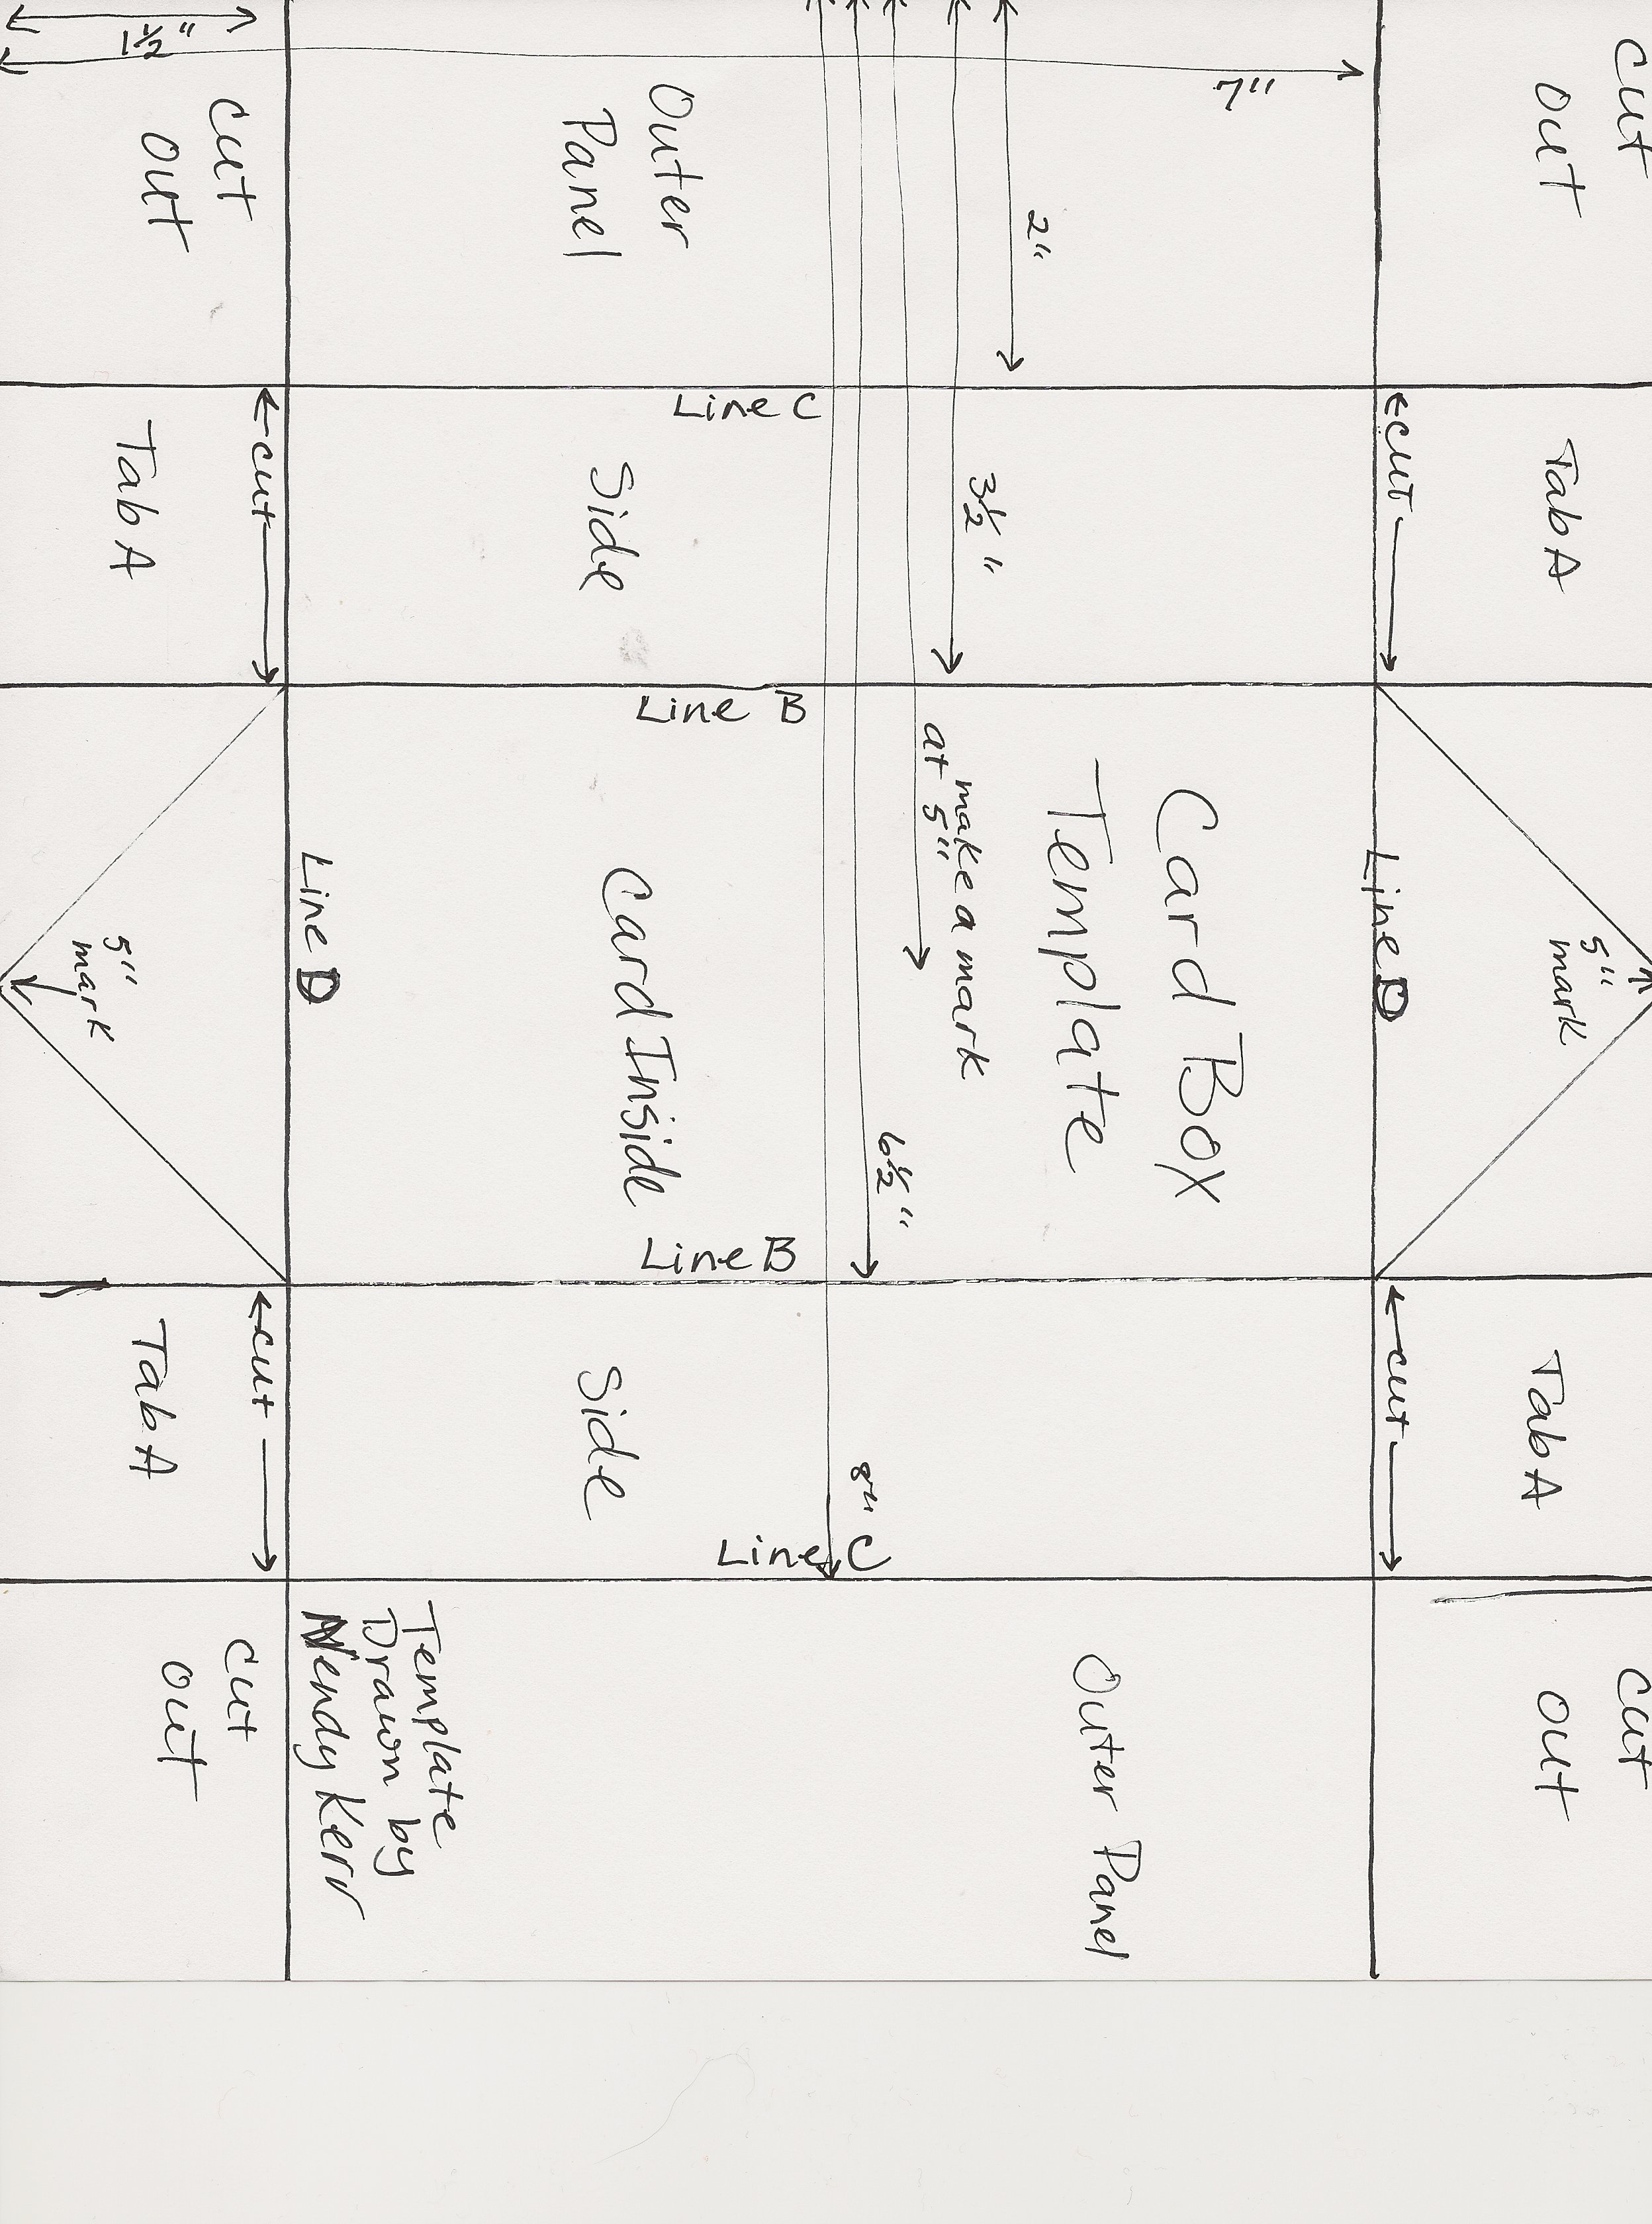 Cut
Out
Tab A
5"
mark
Tab A
Cut
Out
←cut→
Line D
←cut→
7"
Card Box
Template
2"
3½"
make a mark
at 5"
6½"
8"
Outer
Panel
Line C
Side
Line B
Card Inside
Line B
Side
Line C
Outer Panel
Template
Drawn by
Wendy Kerr
1½"
Cut
Out
←cut→
Tab A
Line D
5"
mark
←cut→
Tab A
Cut
Out